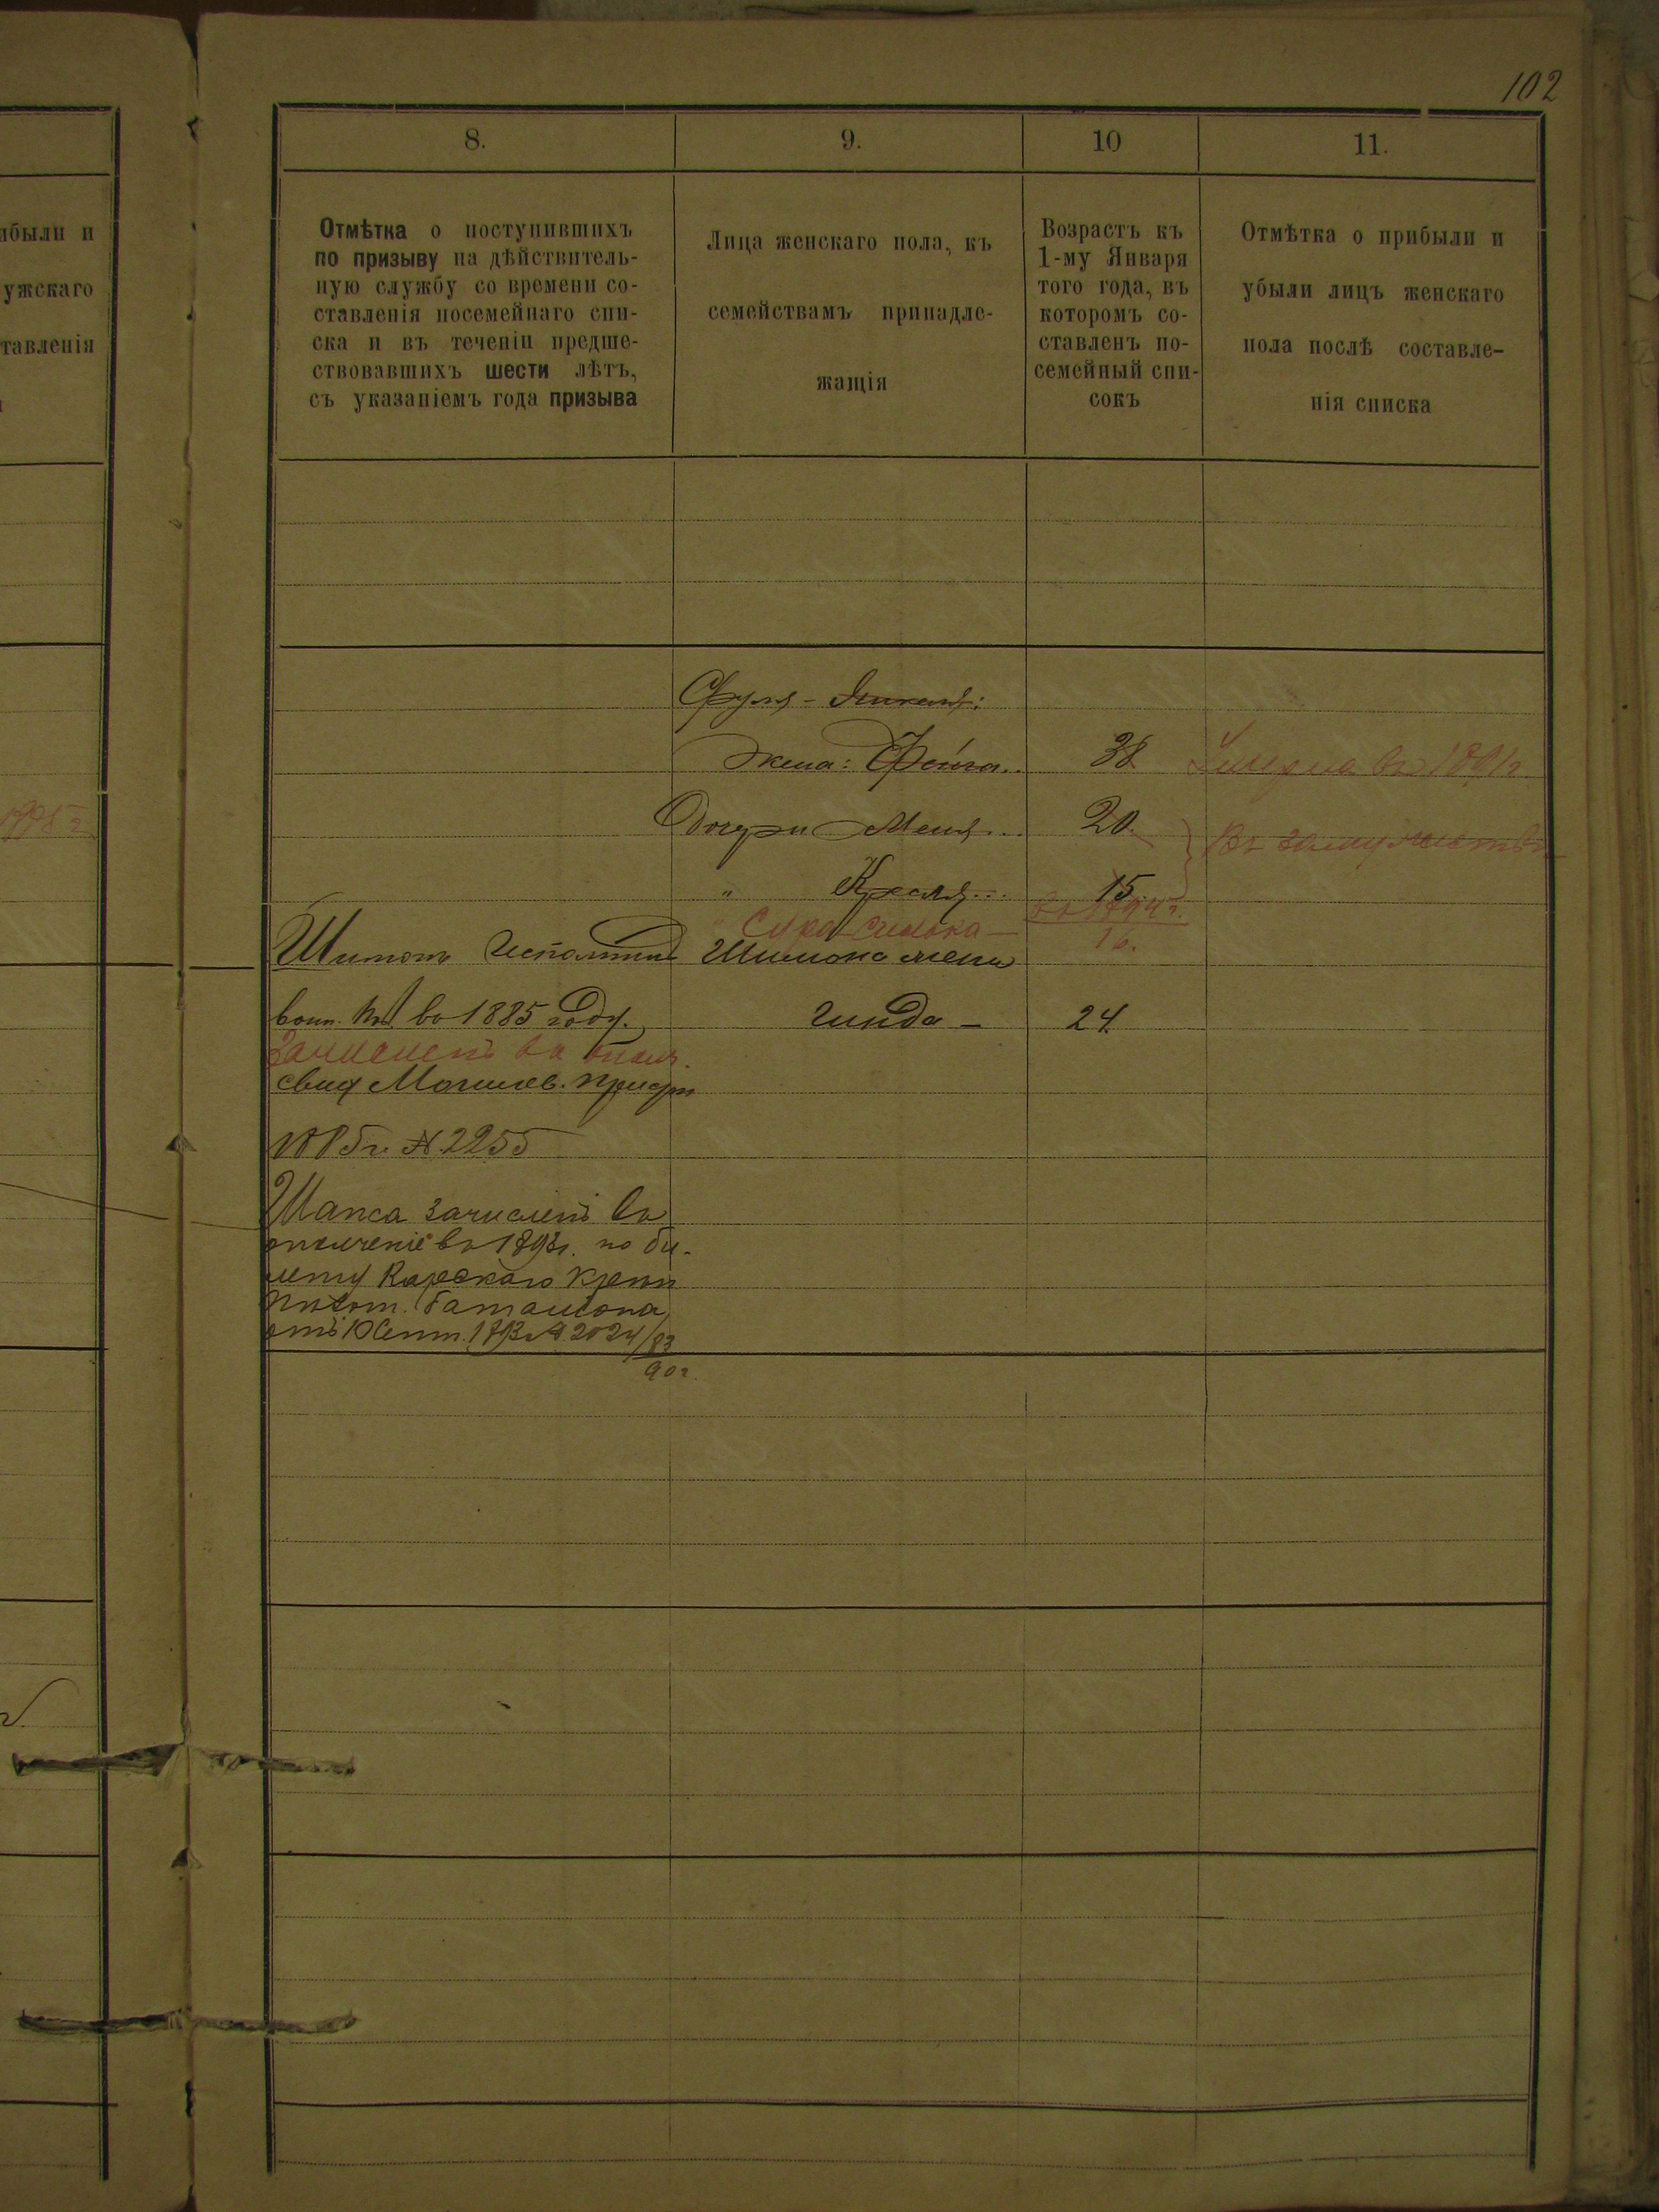 102
8.
9.
10
11.
ибыли и
ужскаго
тавленія
Отмѣтка о поступившихъ
по призыву на дѣйствитель-
ную службу со времени со-
ставленія посемейнаго спи-
ска и въ теченіи предше-
ствовавшихъ шести лѣтъ,
съ указаніемъ года призыва
Лица женскаго пола, къ
семействамъ принадле-
жащія
Возрастъ къ
1-му Января
того года, въ
которомъ со-
ставленъ по-
семейный спи-
сокъ
Отмѣтка о прибыли и
убыли лицъ женскаго
пола послѣ составле-
нія списка
Жена: Фейга 38 Умерла въ 1891 г.
Дочери Меня 20. Въ замужествѣ
" Креля 15
" Сура въ 1894 г.
16.
Шимона жена
вѣ 1885 году. Гинда 24
Зачисленъ въ ополч.
свид Могилев. присут
1885 г. № 2255
Шапса зачисленъ въ
ополченіе въ 1893 г. по би-
лету Карскаго Крѣп
Пѣхот. баталіона
отъ 10 Сент. № 2024/93
90 г.